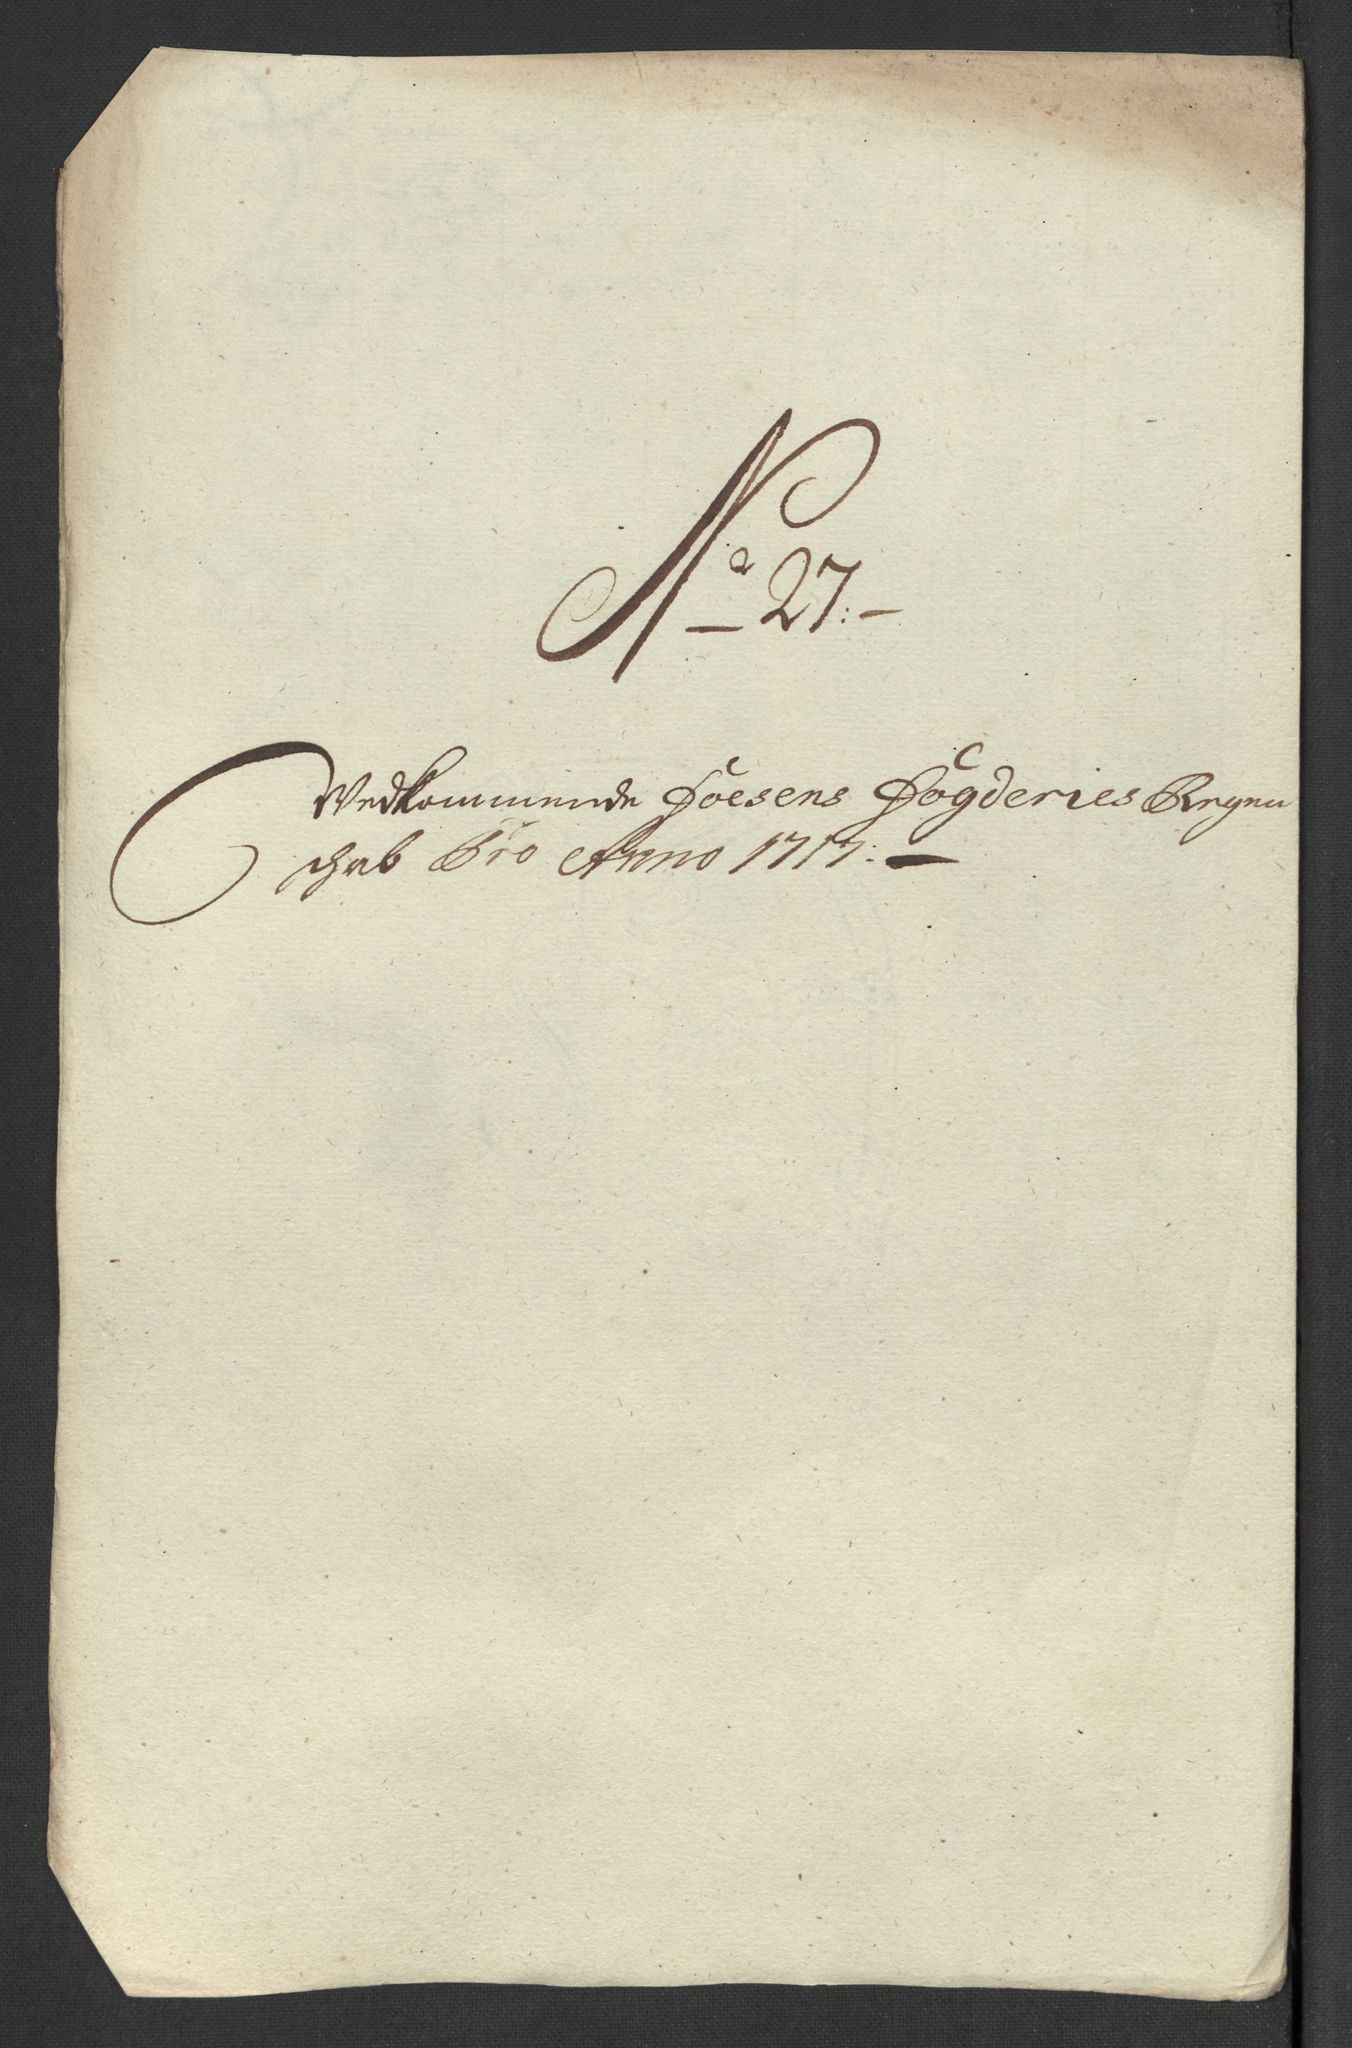 No 27:-
Vedkommende Foesens Fogderies Regen
schab Pro Anno 1717:-